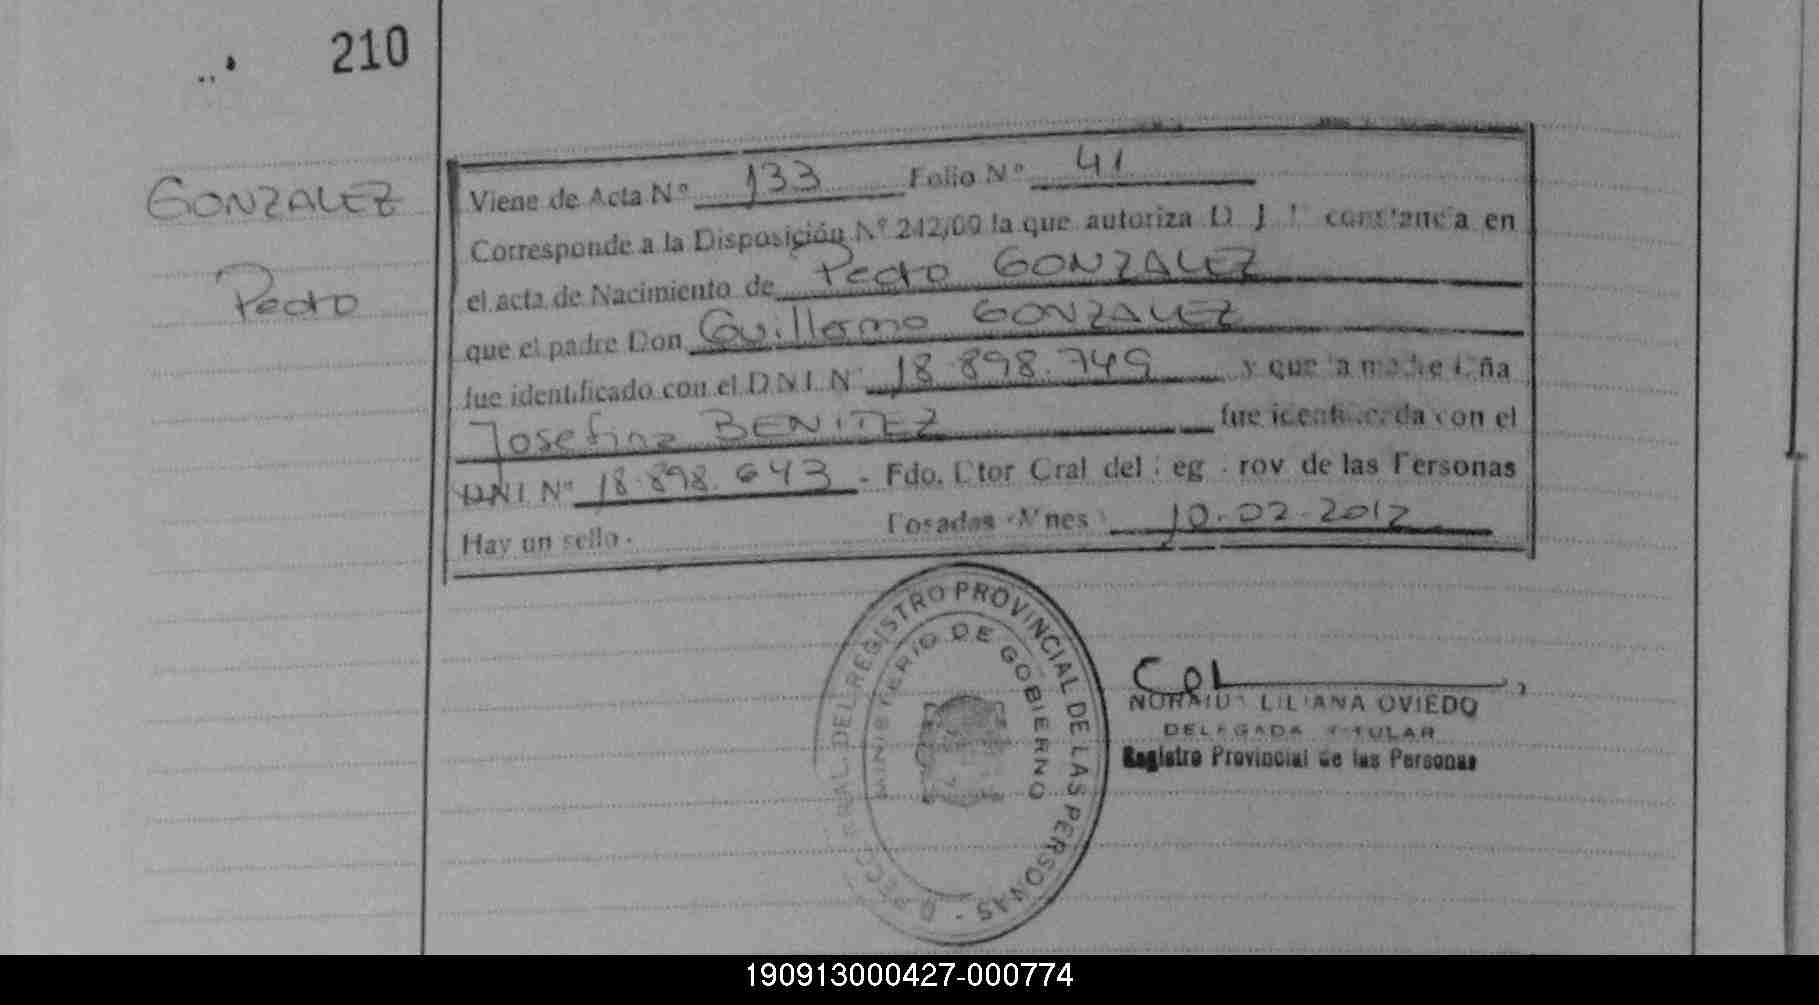 210
GONZALEZ
Pedro
Viene de Acta Nº 133 Folio Nº 41
Corresponde a la Disposición Nº 242/09 la que autoriza D J constancia en
el acta de Nacimiento de Pedro GONZALEZ
que el padre Don Guillermo GONZALEZ
fue identificado con el D.N.I. Nº 18.898.749 y que la madre
Josefina BENITEZ fue identificada con el
DNI Nº 18.898.643 - Fdo. Dtor Gral del Reg Prov de las Personas
Hay un sello. Posadas Mnes 10-02-2012
DEL REGISTRO PROVINCIAL DE LAS PERSONAS
MINISTERIO DE GOBIERNO
LILIANA OVIEDO
DELEGADA TITULAR
Registro Provincial de las Personas
190913000427-000774